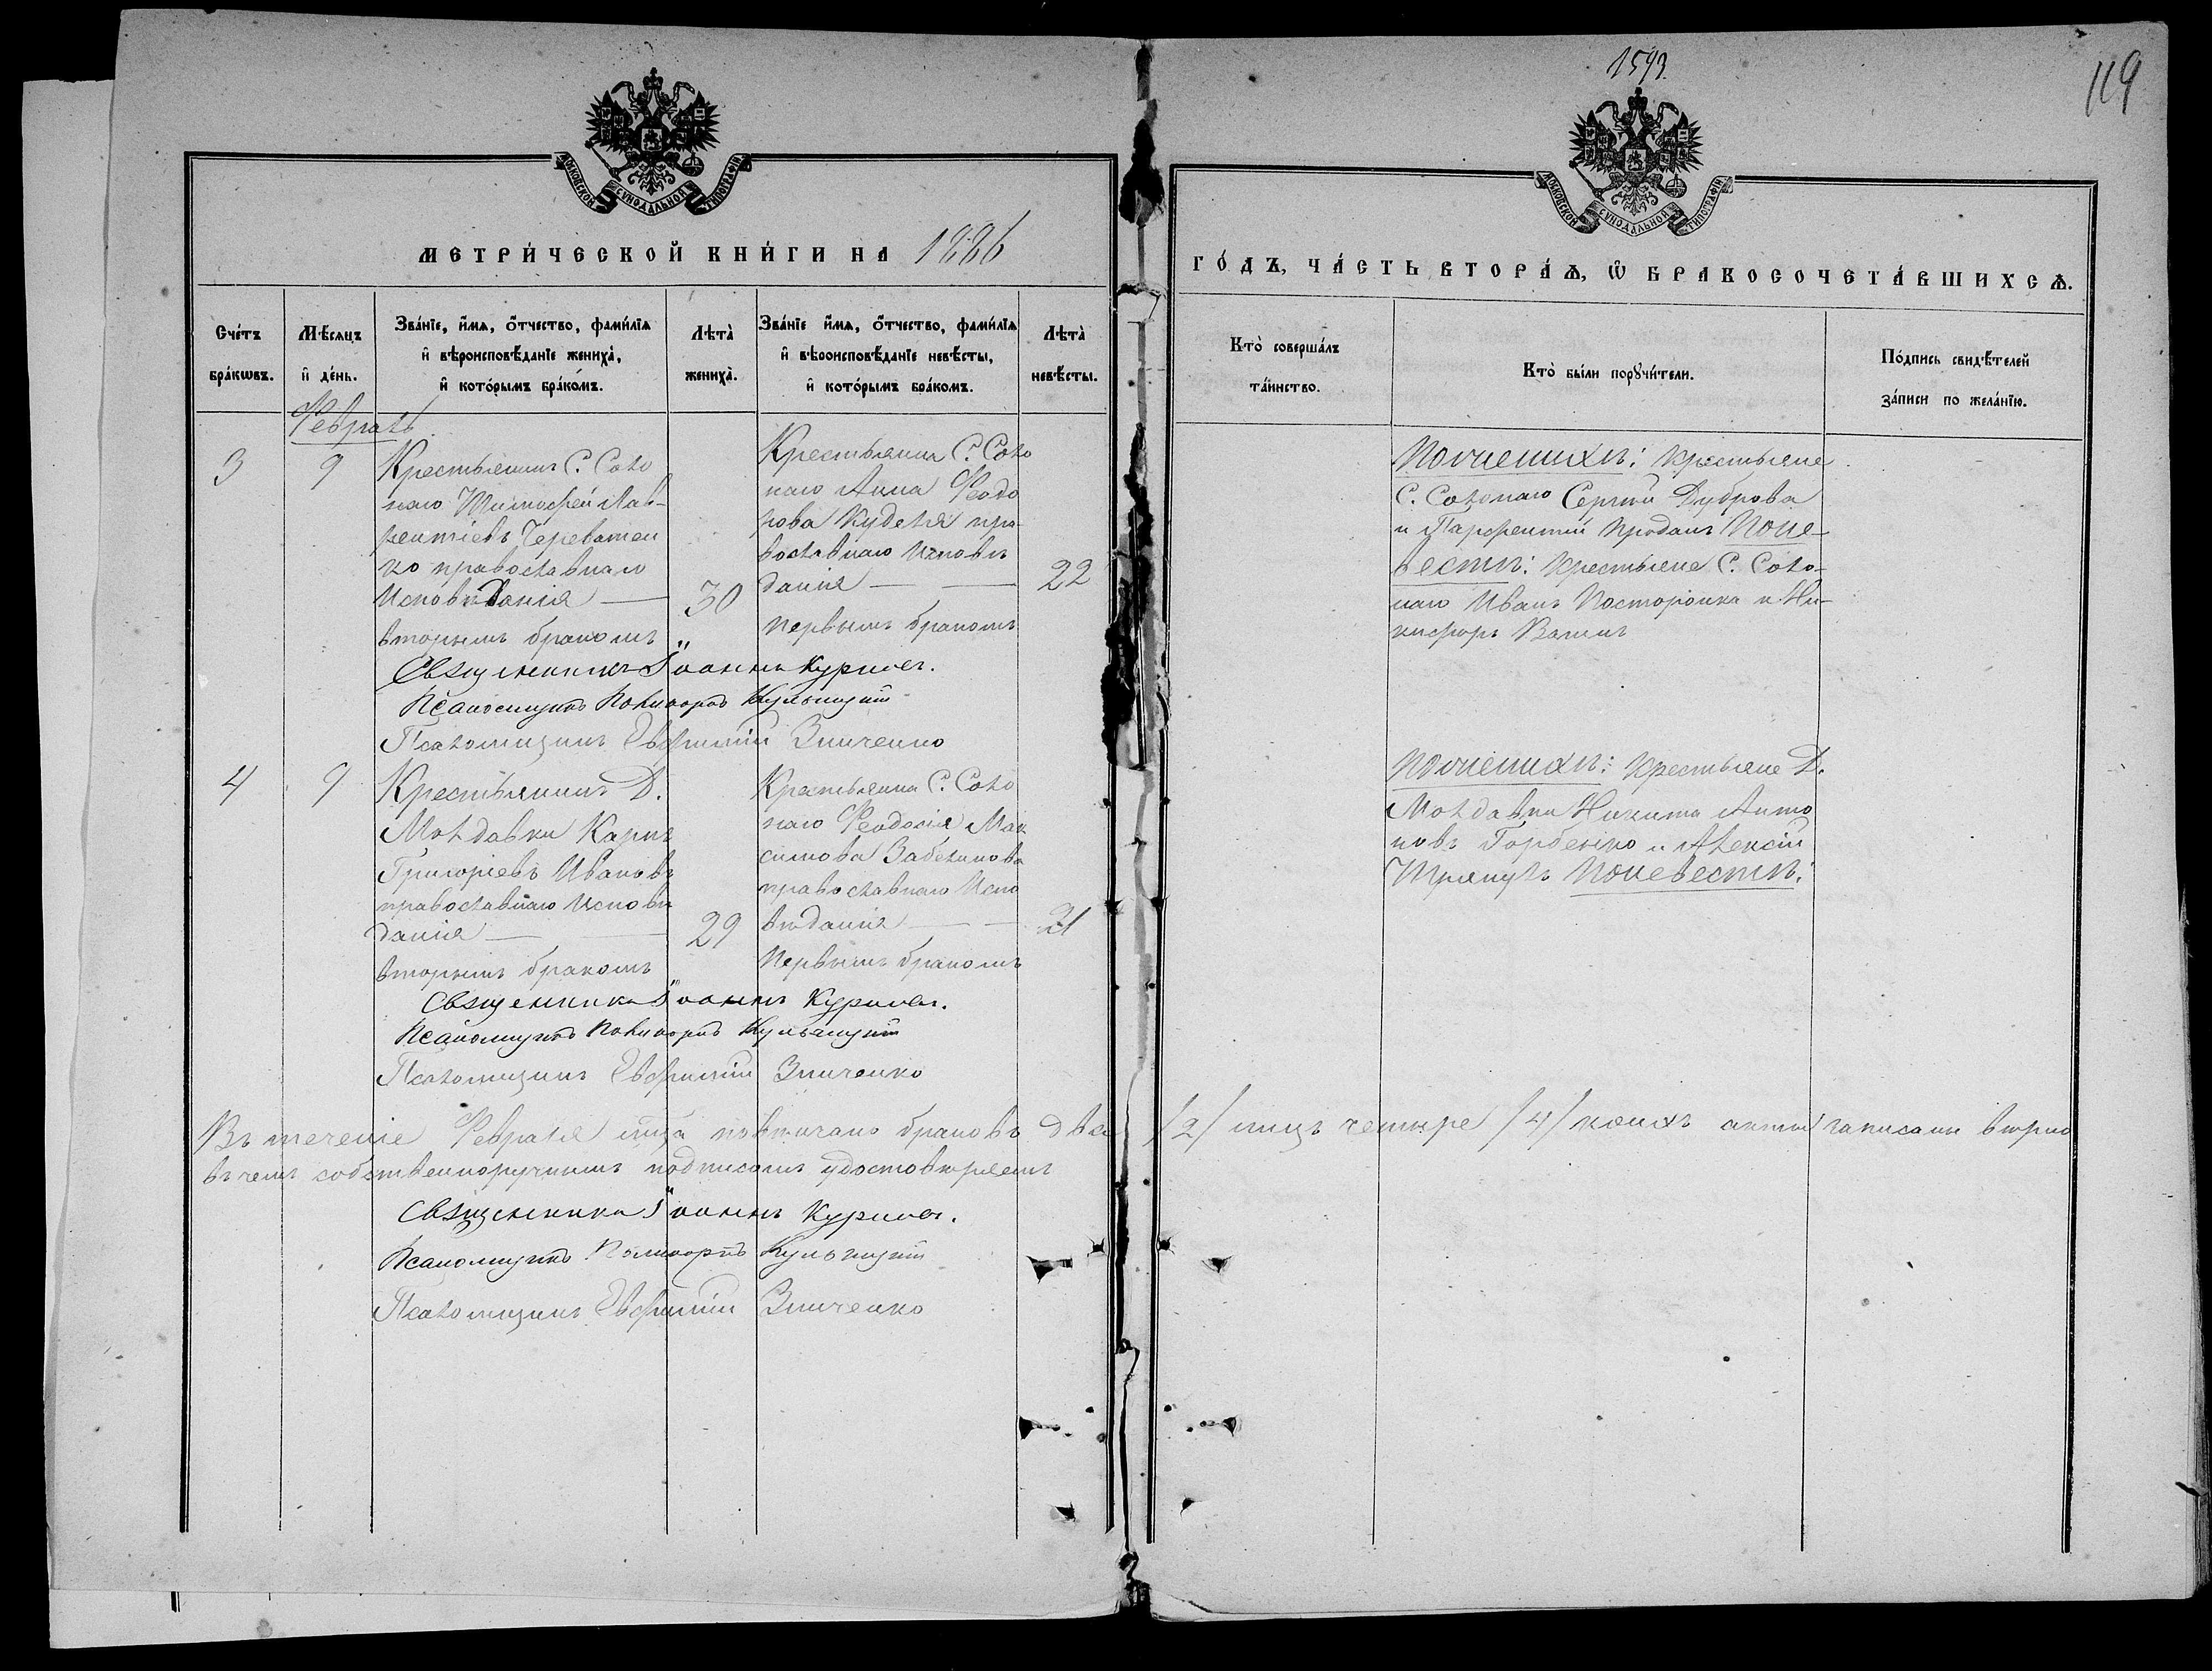 1593.
119
МОСКОВСКОЙ СѴНОДАЛЬНОЙ ТИПОГРАФІИ
МОСКОВСКОЙ СѴНОДАЛЬНОЙ ТИПОГРАФІИ
МЕТРИ́ЧЕСКОЙ КНИ́ГИ НА 1886
ГО́ДЪ, ЧА́СТЬ ВТОРА́Ѧ, Ѽ БРАКОСОЧЕТА́ВШИХСѦ.
Сче́тъ
бра́кωвъ.
Мѣ́сяцъ
и҆ де́нь.
Зва́нїе, и҆́мѧ, ѻ҆́тчество, фами́лїѧ
и҆ вѣроисповѣ́данїе жениха̀,
и҆ кото́рымъ бра́комъ.
Лѣта̀
жениха̀.
Зва́нїе и҆́мѧ, ѻ҆́тчество, фами́лїѧ
и҆ вѣроисповѣ́данїе невѣ́сты,
и҆ кото́рымъ бра́комъ.
Лѣта̀
невѣ́сты.
Кто̀ соверша́лъ
та́инство.
Кто̀ бы́ли порꙋчи́тели.
По́дпись свидѣ́телей
за́писи по жела́нїю.
Февраль
3
9
Крестьянинъ С. Соло
наго Тимофей Лав-
рентіевъ Череватен
ко православнаго
Исповѣданія —
30
вторымъ бракомъ „
Крестьянка С. Соло
наго Анна Феодо
рова Куделя пра-
вославнаго Исповѣ
данія —
22
первымъ бракомъ
Поженихѣ: Крестьяне
С. Солонаго Сергій Дуброва
и Парфентій Проданъ Поне-
вѣстѣ: Крестьяне С. Соло-
наго Иванъ Посторонка и Ни-
кифоръ
Священникъ Іоаннъ
Псаломщикъ Поликарпъ Кульчицкій
Псаломщикъ Евфимій Зинченко
4
9
Крестьянинъ Д.
Молдавки Карпъ
Григоріевъ Ивановъ
православнаго Исповѣ
данія —
29
вторымъ бракомъ „
Крестьянка С. Соло
наго Феодосія Мак
симова Забелинова
православнаго Испо
вѣданія —
21
Первымъ бракомъ
Поженихѣ: Крестьяне Д.
Молдавки Никита Анто
новъ Горбенко и Алексій
Поневестѣ:
Священникъ Іоаннъ
Псаломщикъ Поликарпъ Кульчицкій
Псаломщикъ Евфимій Зинченко
Въ теченіе Февраля м̃ца повѣнчано браковъ два /2/ лицъ четыре /4/ коихъ акты записаны вѣрно
въ чемъ собственноручнымъ подписомъ удостовѣряемъ
Священникъ Іоаннъ
Псаломщикъ Поликарпъ Кульчицкій
Псаломщикъ Евфимій Зинченко